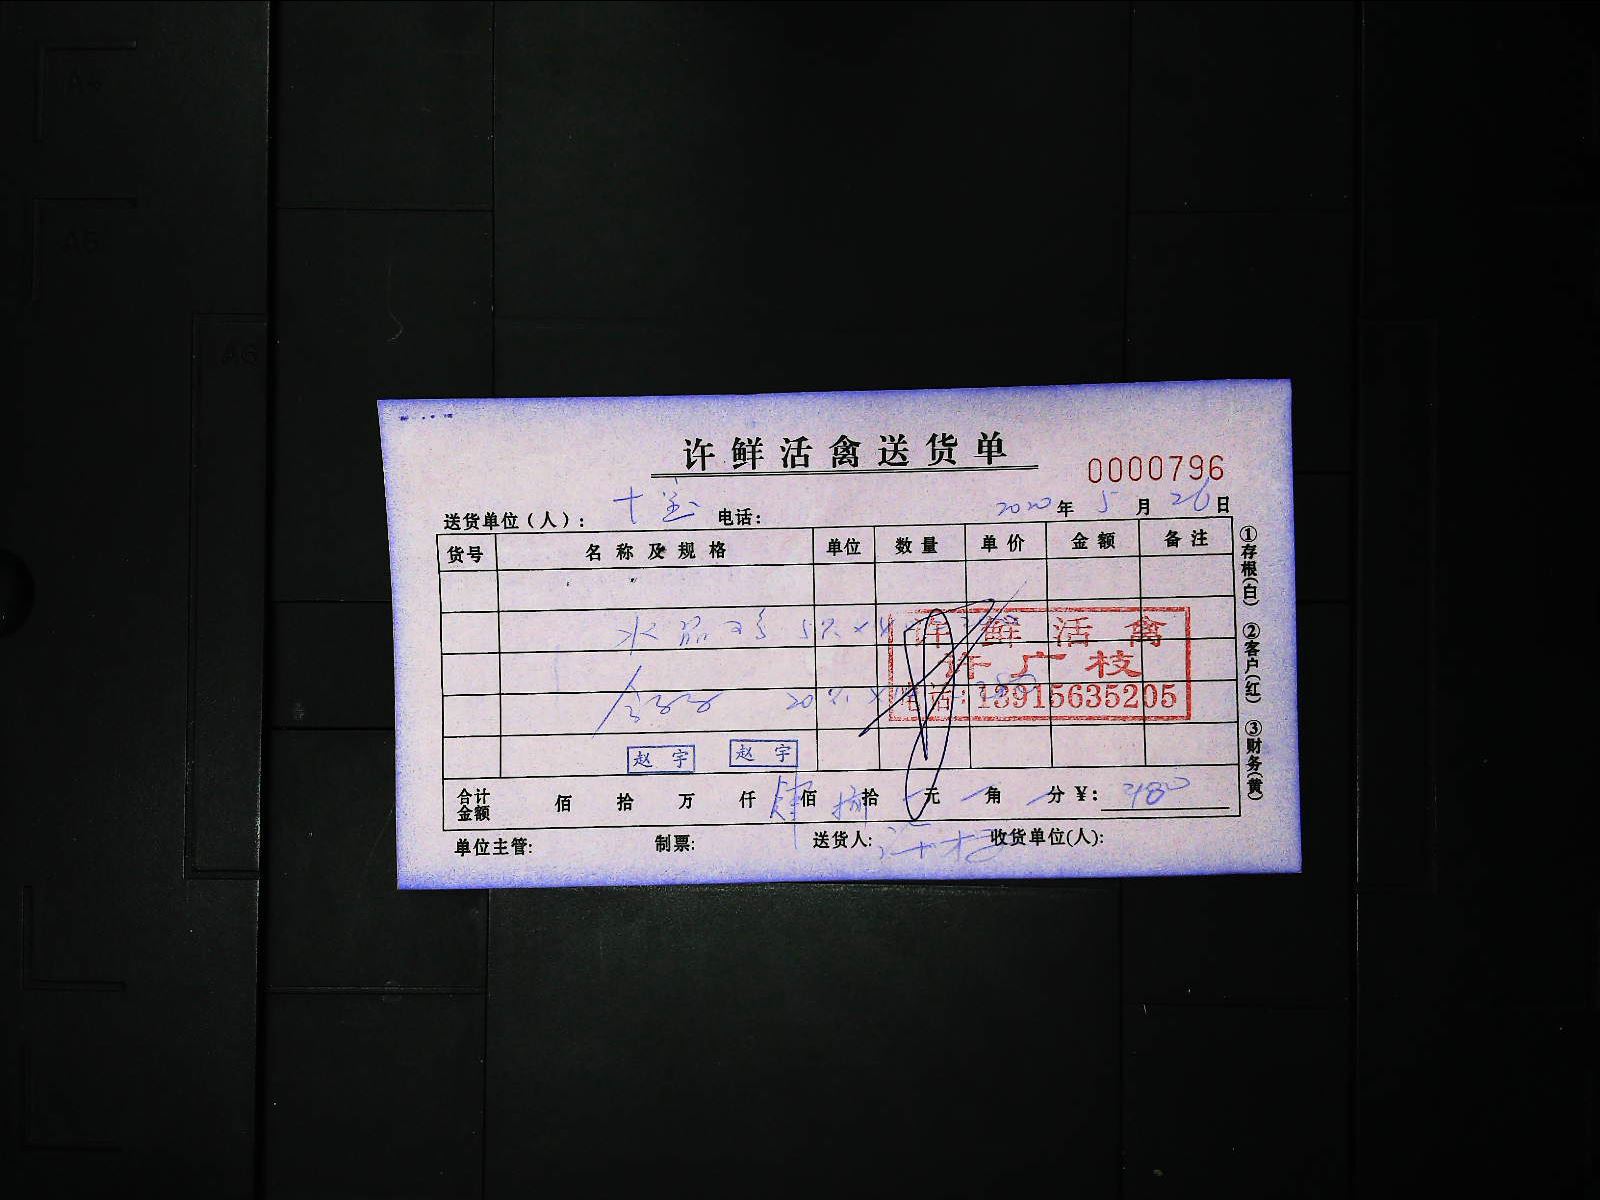 A4
A5
A6
许鲜活禽送货单
0000796
送货单位（人）： 十 电话： 2020年5月26日
货号 名称及规格 单位 数量 单价 金额 备注
水晶 5
许鲜活禽
许广枝
电话：13915635205
20
赵宇 赵宇
合计金额 佰 拾 万 仟 肆佰 捌拾 元 角 分 ￥： 480
单位主管： 制票： 送货人： 许 收货单位(人)：
①存根(白) ②客户(红) ③财务(黄)